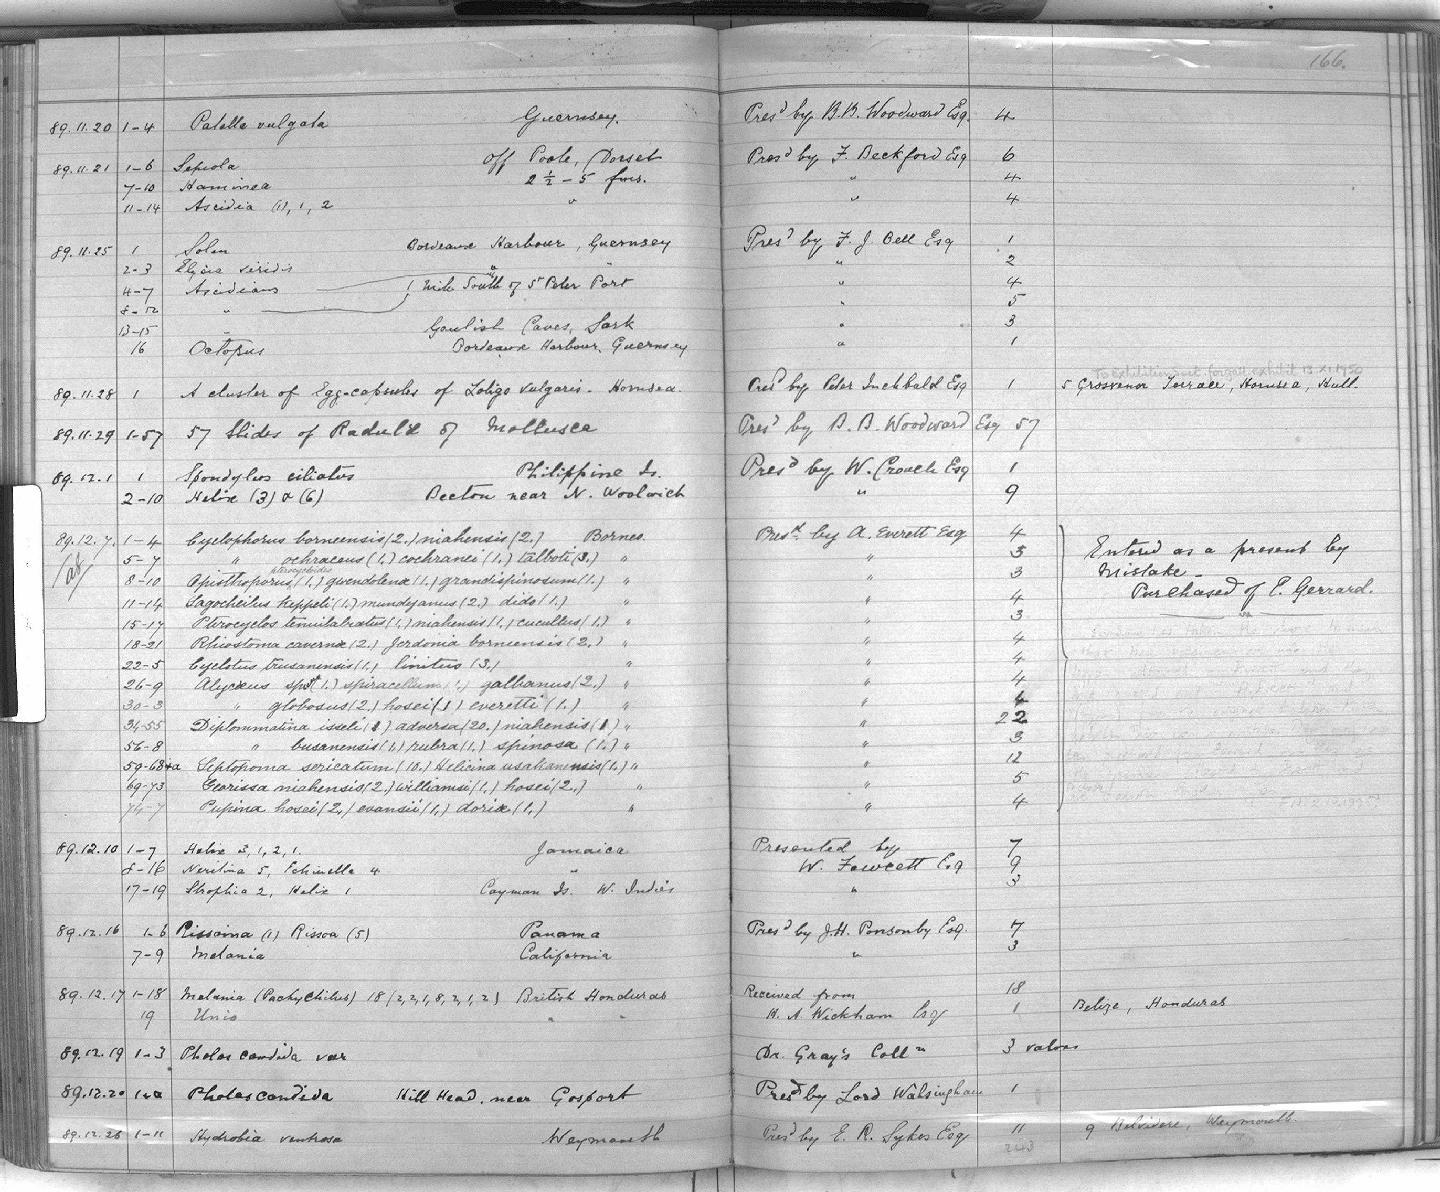 166.
89.11.20 1-4 Patella vulgata Guernsey. Pres^d by B.B. Woodward Esq. 4
89.11.21 1-6 Sepiola Off Poole, Dorset Pres^d by F. Beckford Esq 6
7-10 Haminea 2 1/2 - 5 fms. " 4
11-14 Ascidia (1), 1, 2 " " 4
89.11.25 1 Solen Bordeaux Harbour, Guernsey Pres^d by F. J. Bell Esq 1
2-3 Elysia viridis " " 2
4-7 Ascidians 1/4 Mile South of St Peter Port " 4
8-12 " " 5
13-15 " Goulish Caves, Sark " 3
16 Octopus Bordeaux Harbour, Guernsey " 1
To exhibition set for gall. exhibit 13.XI.1950
89.11.28 1 A cluster of Egg-capsules of Loligo vulgaris - Hornsea. Pres^d by Peter Inchbald Esq 1 5 Grosvenor Terrace, Hornsea, Hull.
89.11.29 1-57 57 Slides of Radulæ of Mollusca Pres^d by B. B. Woodward Esq 57
89.12.1 1 Spondylus ciliatus Philippine Is. Pres^d by W. Crouch Esq 1
2-10 Helix (3) & (6) Becton near N. Woolwich " 9
89.12.7. 1-4 Cyclophorus borneensis (2.) niahensis (2.) Borneo. Pres^d by A. Everett Esq 4
5-7 " ochraceus (1.) cochranei (1.) talboti (3.) " " 5
pterocycloides
8-10 Opisthoporus (1.) gwendolenæ (1.) grandispinosum (1.) " " 3
11-14 Lagocheilus keppeli (1.) mundyanus (2.) dido (1.) " " 4
15-17 Pterocyclos tenuilabiatus (1.) niahensis (1.) cucullus (1.) " " 3
18-21 Rhiostoma cavernæ (2.) Jerdonia borneensis (2.) " " 4
22-5 Cyclotus trusanensis (1.) linitus (3.) " " 4
26-9 Alycæus spst (1.) spiracellum (1.) galbanus (2.) " " 4
30-3 " globosus (2.) hosei (1) everetti (1.) " " 4
34-55 Diplommatina isseli (1) adversa (20.) niahensis (1) " " 22
56-8 " busanensis (1.) rubra (1.) spinosa (1.) " " 3
59-68+a Leptopoma sericatum (10.) Helicina usahanensis (1.) " " 12
69-73 Georissa niahensis (2.) williamsi (1.) hosei (2.) " " 5
74-7 Pupina hosei (2.) evansii (1.) doriæ (1.) " " 4
Entered as a present by
Mistake -
Purchased of E. Gerrard.
89.12.10 1-7 Helix 3, 1, 2, 1. Jamaica Presented by 7
8-16 Neritina 5, Echinella 4 " W. Fawcett Esq 9
17-19 Strophia 2, Helix 1 Cayman Is. W. Indies " 3
89.12.16 1-6 Rissoina (1) Rissoa (5) Panama Pres^d by J.H. Ponsonby Esq. 7
7-9 Melania California " 3
89.12.17 1-18 Melania (Pachychilus) 18 (2,2,1,8,2,1,2) British Honduras Received from 18
19 Unio " " H. A. Wickham Esq 1 Belize, Honduras
89.12.19 1-3 Pholas candida var Dr. Gray's Coll^n 3 valves
89.12.20 1+a Pholas candida Hill Head. near Gosport Pres^d by Lord Walsingham 1
89.12.26 1-11 Hydrobia ventrosa Weymouth Pres^d by E. R. Sykes Esq 11 9 Belvidere, Weymouth.
243